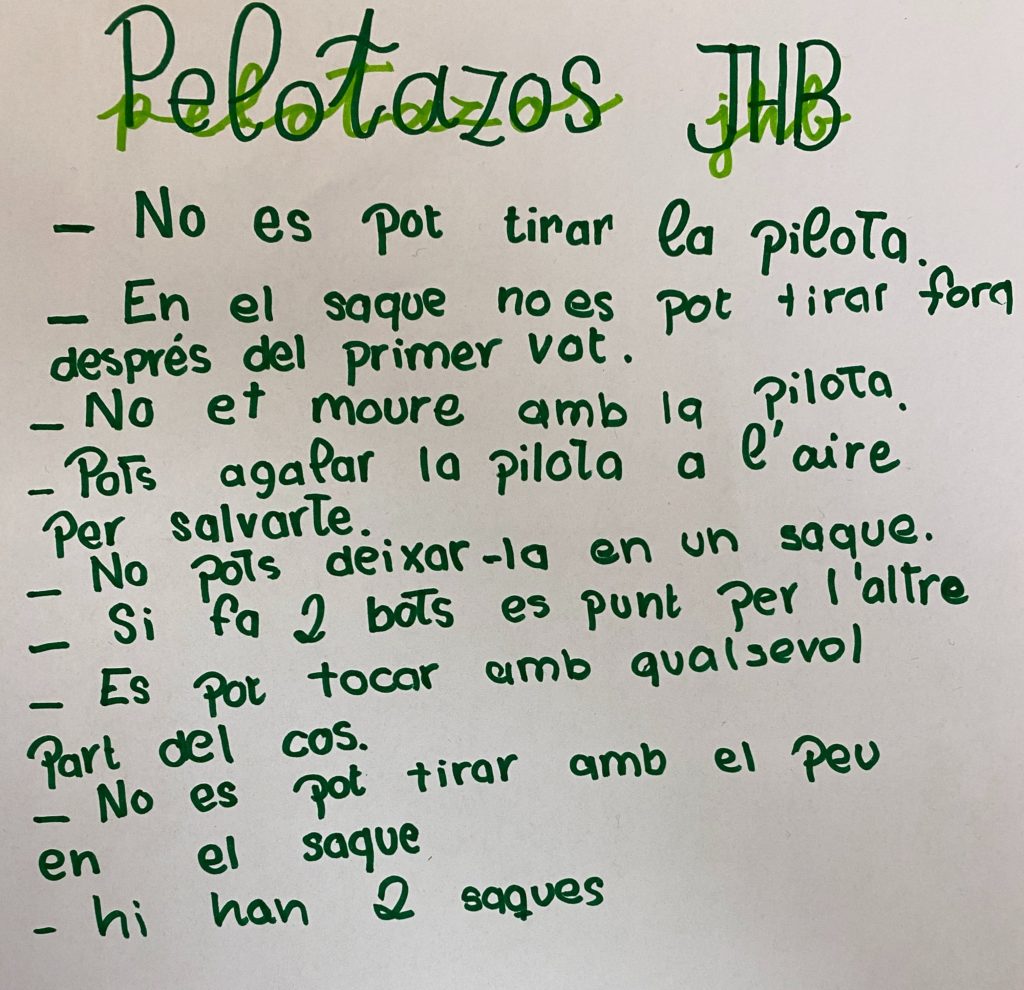 Pelotazos JHB
pelotazos jhb
- No es pot tirar la pilota.
- En el saque no es pot tirar fora
després del primer vot.
- No et moure amb la pilota.
- Pots agafar la pilota a l'aire
per salvarte.
- No pots deixar-la en un saque.
- Si fa 2 bots es punt per l'altre
- Es pot tocar amb qualsevol
Part del cos.
- No es pot tirar amb el peu
en el saque
- hi han 2 saques